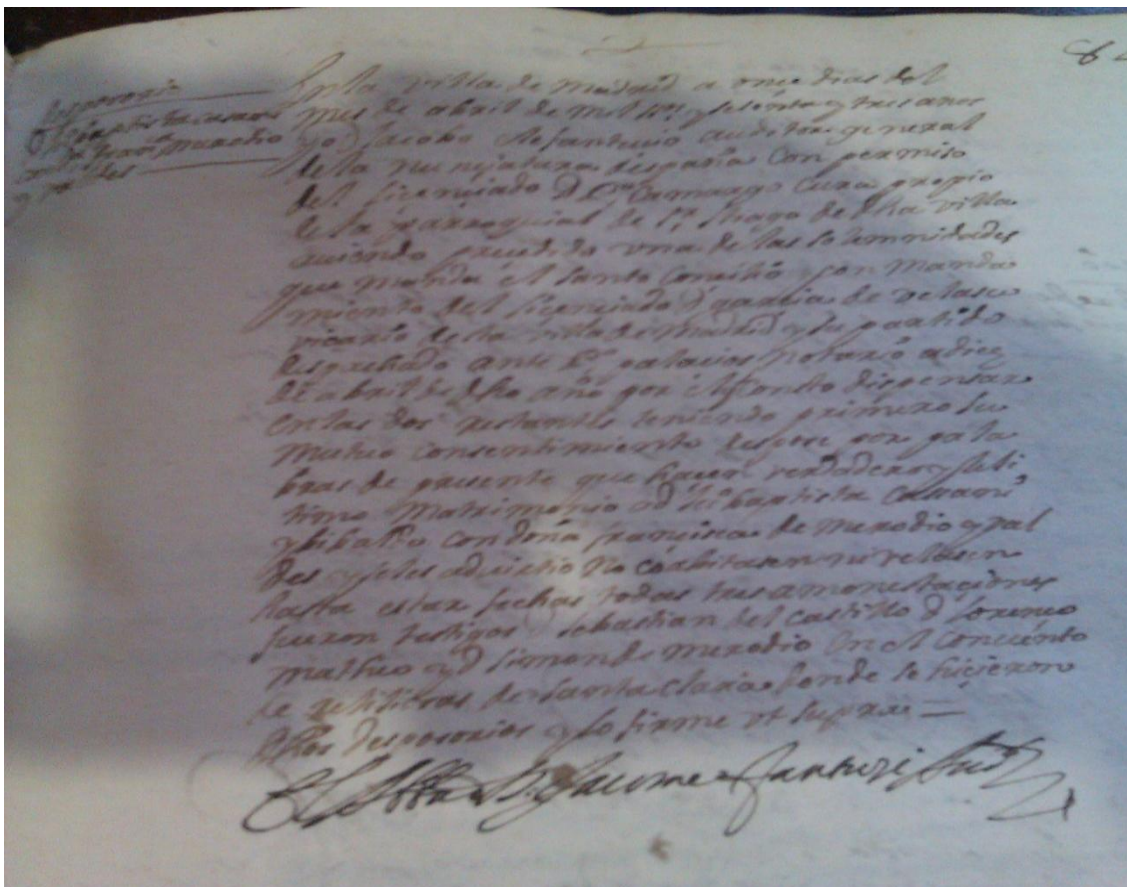 desposorio
En la villa de Madrid a once dias del
mes de abril de mil y sesenta y tres años
yo Jacobo auditor general
de la nunçiatura despaña con permiso
del liçençiado D Camargo Cura propio
de la parroquial de Sn. tiago de dha villa
auiendo precedido una de las solemnidades
que manda el santo Concilio, con manda
miento del liçençiado D garcia de velasco
vicario de la villa de Madrid y su partido
despachado ante palacios notario a diez
de abril de dho año por el consto dispensar
en las dos restantes teniendo primero su
mutuo consentimiento despose por pala
bras de presente que hacen verdadero y lexi
timo Matrimonio a D Ju baptista
con doña francisca de murodio y val
des y les advierto no coabitasen ni velasen
hasta estar fechas todas tres amonestaciones
fueron testigos Sebastian del Castillo D Lorenço
matheo y D Simon de murodio en el Convento
de Relixiosas de Santa Clara donde se hiçieron
dhos desposorios y lo firme ut supra